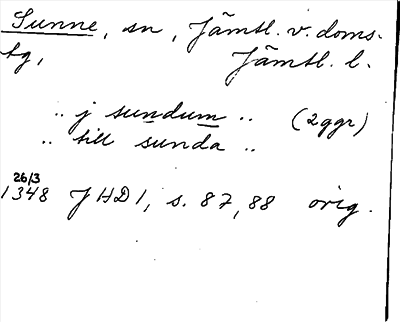 Sunne, sn, Jämtl. v. doms.
tg, Jämtl. l.
.. j sundum .. (2ggr)
.. till sunda ..
26/3
1348 JHD 1, s. 87, 88 orig.